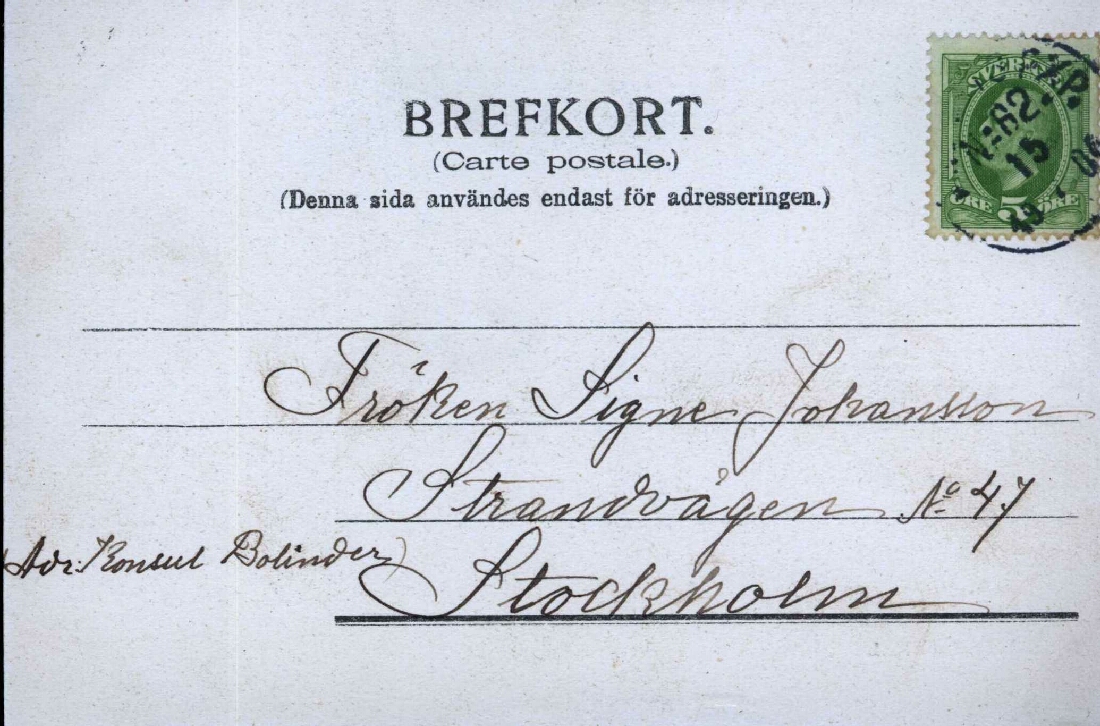 BREFKORT.
(Carte postale.)
(Denna sida användes endast för adresseringen.)
SVERIGE
5
ÖRE ÖRE
EXP.
No 62
15
Fröken Signe Johansson
Strandvägen No 47
(Adr. Konsul Bolinder)
Stockholm